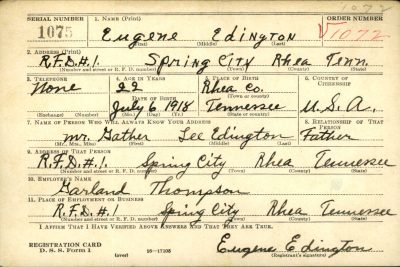 1072
SERIAL NUMBER 1. NAME (Print) ORDER NUMBER
1075 Eugene Edington √1072
(First) (Middle) (Last)
2. ADDRESS (Print)
R.F.D.#.1. Spring City Rhea Tenn.
(Number and street or R. F. D. number) (Town) (County) (State)
3. TELEPHONE 4. AGE IN YEARS 5. PLACE OF BIRTH 6. COUNTRY OF CITIZENSHIP
None 22 Rhea Co.
DATE OF BIRTH (Town or county)
July 6, 1918 Tennessee U.S.A.
(Mo.) (Day) (Yr.) (State or country)
7. NAME OF PERSON WHO WILL ALWAYS KNOW YOUR ADDRESS 8. RELATIONSHIP OF THAT PERSON
Mr. Gather Lee Edington Father
(Mr., Mrs., Miss) (First) (Middle) (Last)
9. ADDRESS OF THAT PERSON
R.F.D.#.1. Spring City Rhea Tennessee
(Number and street or R. F. D. number) (Town) (County) (State)
10. EMPLOYER'S NAME
Garland Thompson
11. PLACE OF EMPLOYMENT OR BUSINESS
R.F.D.#.1 Spring City Rhea Tennessee
(Number and street or R. F. D. number) (Town) (County) (State)
I AFFIRM THAT I HAVE VERIFIED ABOVE ANSWERS AND THAT THEY ARE TRUE.
REGISTRATION CARD
D. S. S. Form 1 (over) 16—17105 Eugene Edington
(Registrant's signature)